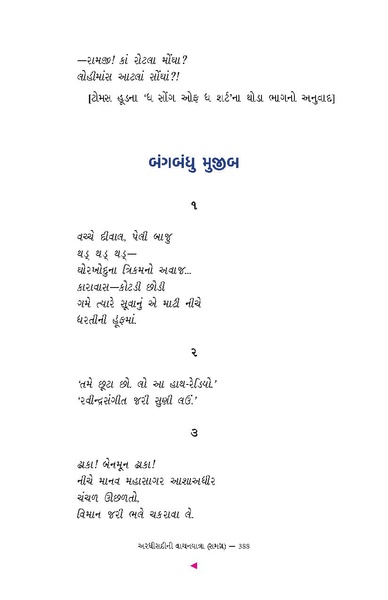 —રામજી! કાં રોટલા મોંઘા?
લોહીમાંસ આટલાં સોંઘાં?!
[ટોમસ હૂડના ‘ધ સોંગ ઓફ ધ શર્ટ’ના થોડા ભાગનો અનુવાદ]
બંગબંધુ મુજીબ
૧
વચ્ચે દીવાલ, પેલી બાજુ
થડ્ થડ્ થડ્—
ઘોરખોદુના ત્રિકમનો અવાજ...
કારાવાસ—કોટડી છોડી
ગમે ત્યારે સૂવાનું એ માટી નીચે
ધરતીની હૂંફમાં.
૨
‘તમે છૂટા છો. લો આ હાથ-રેડિયો.’
‘રવીન્દ્રસંગીત જરી સુણી લઉં.’
૩
ઢાકા! બેનમૂન ઢાકા!
નીચે માનવ મહાસાગર આશાઅધીર
ચંચળ ઊછળતો,
વિમાન જરી ભલે ચકરાવા લે.
અરધીસદીની વાચનયાત્રા (સમગ્ર) — 388